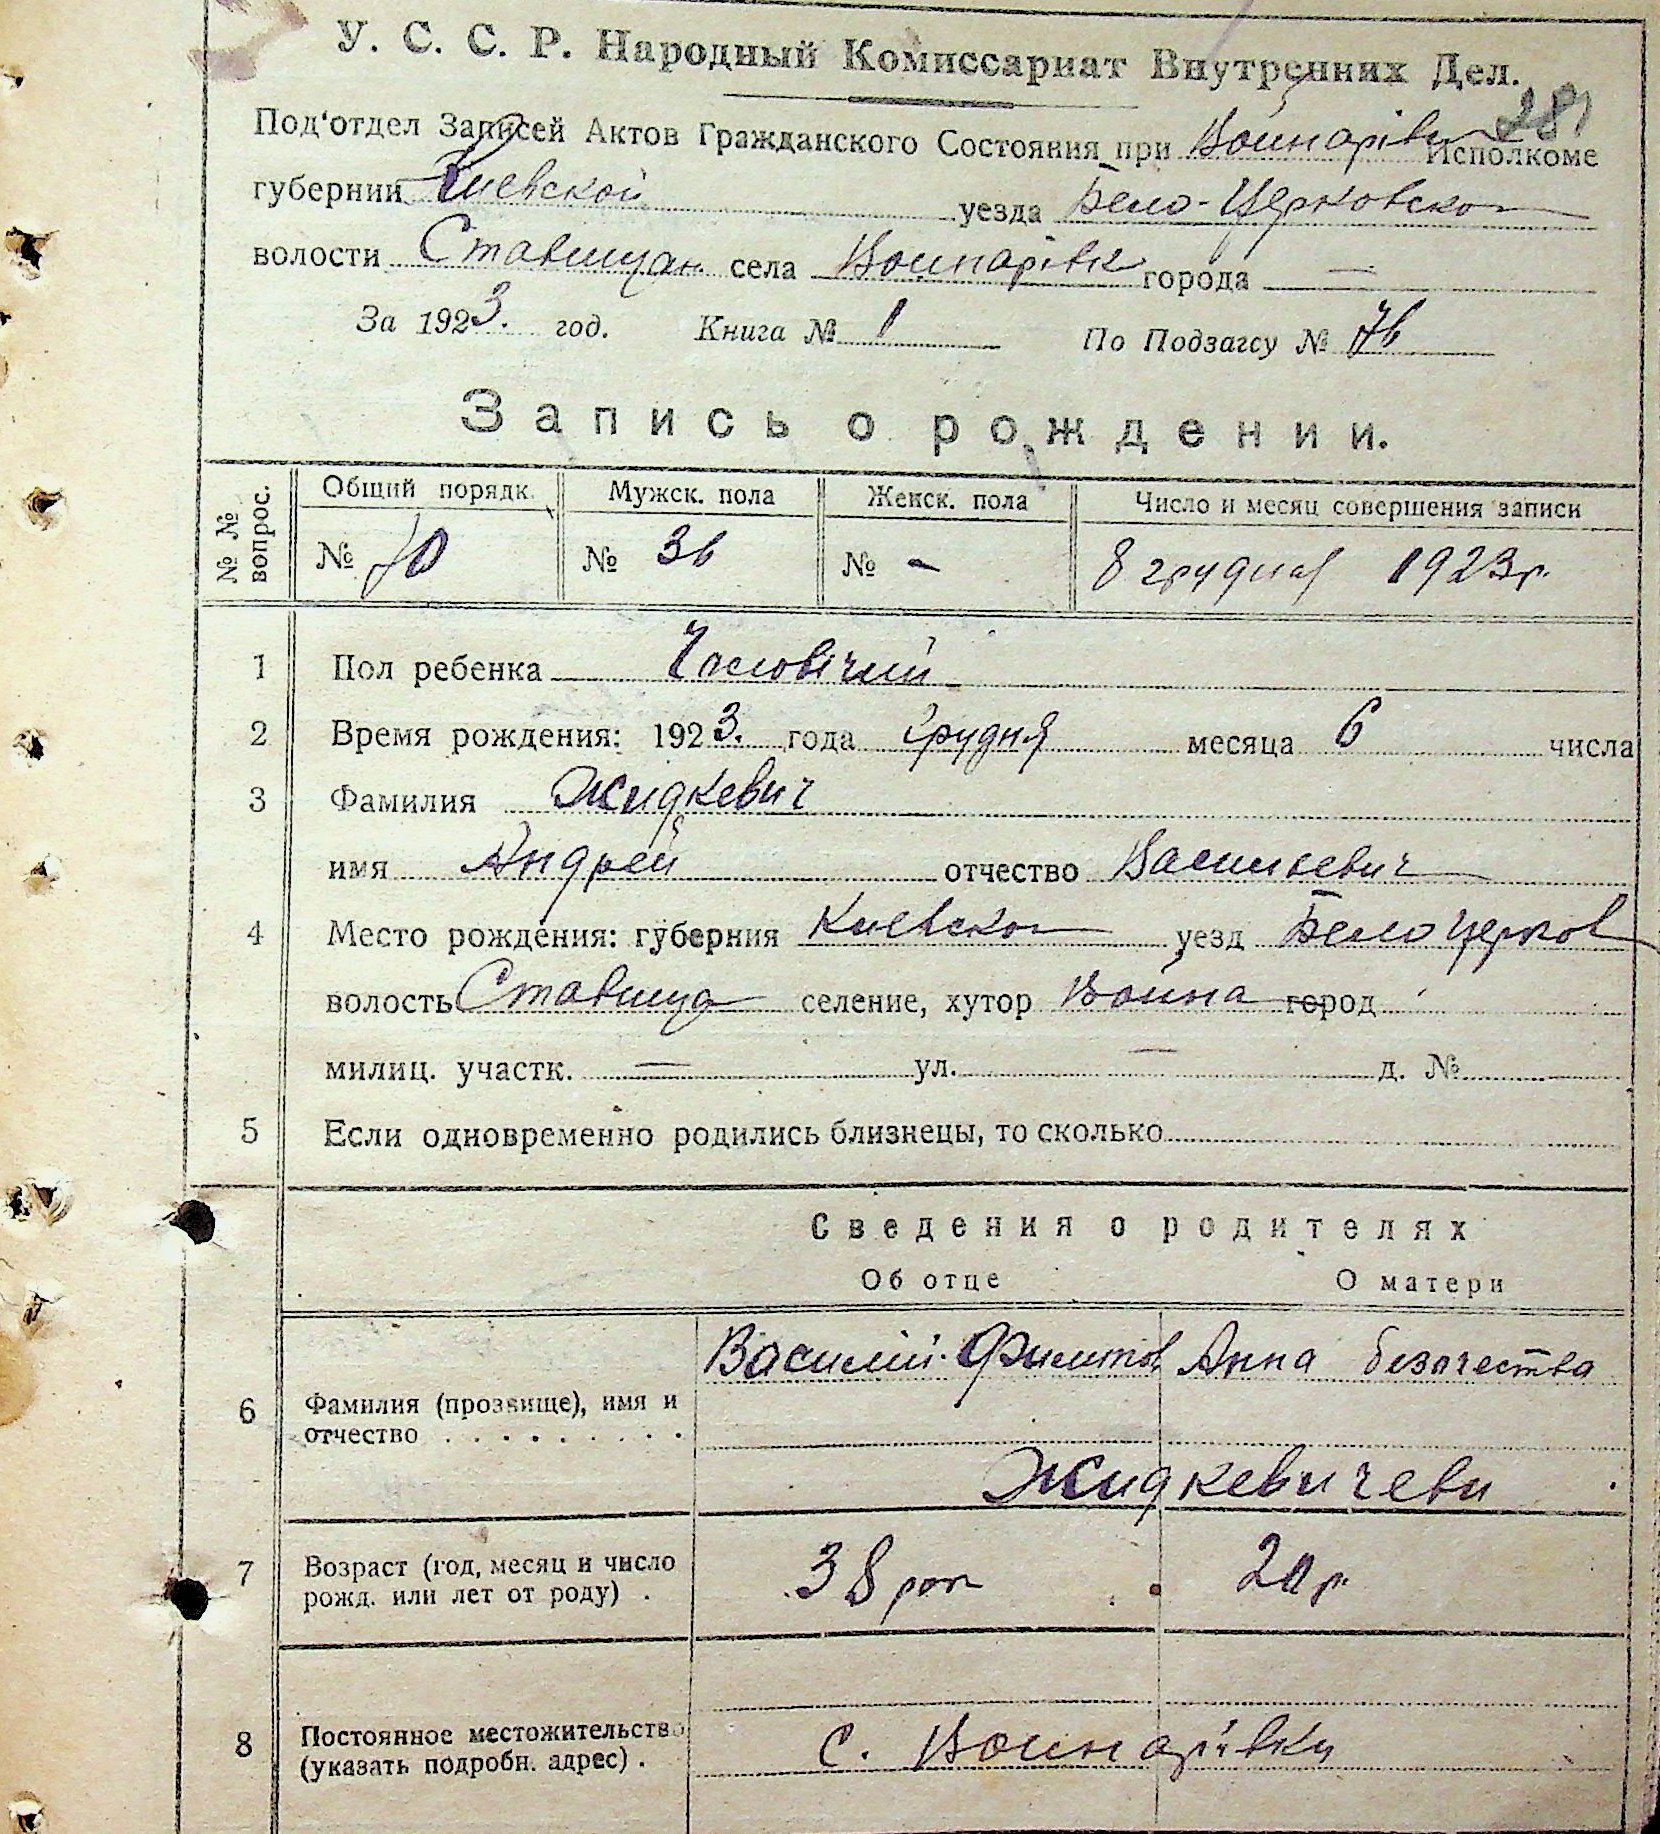 281
У. С. С. Р. Народный Комиссариат Внутренних Дел.
Под'отдел Записей Актов Гражданского Состояния при Войнарівк Исполкоме
губернии Киевской уезда Бело-Церковской
волости Ставищан села Войнарівк города —
За 1923. год. Книга № 1 По Подзагсу № 76
Запись о рождении.
№ № вопрос. Общий порядк. Мужск. пола Женск. пола Число и месяц совершения записи
№ 70 № 36 № - 8 грудня 1923р.
1 Пол ребенка Чоловічий
2 Время рождения: 1923. года Грудня месяца 6 числа
3 Фамилия Жидкевич
имя Андрей отчество Васильевич
4 Место рождения: губерния Киевской уезд Белоцерков
волость Ставища селение, хутор Война город
милиц. участк. — ул. — д. №
5 Если одновременно родились близнецы, то сколько
Сведения о родителях
Об отце О матери
Василий Филитов Анна безочества
6 Фамилия (прозвище), имя и
отчество . . . . . . . . .
Жидкевичеви
7 Возраст (год, месяц и число 38 рок 20 р.
рожд. или лет от роду) .
8 Постоянное местожительство с. Войнарівки
(указать подробн. адрес) .